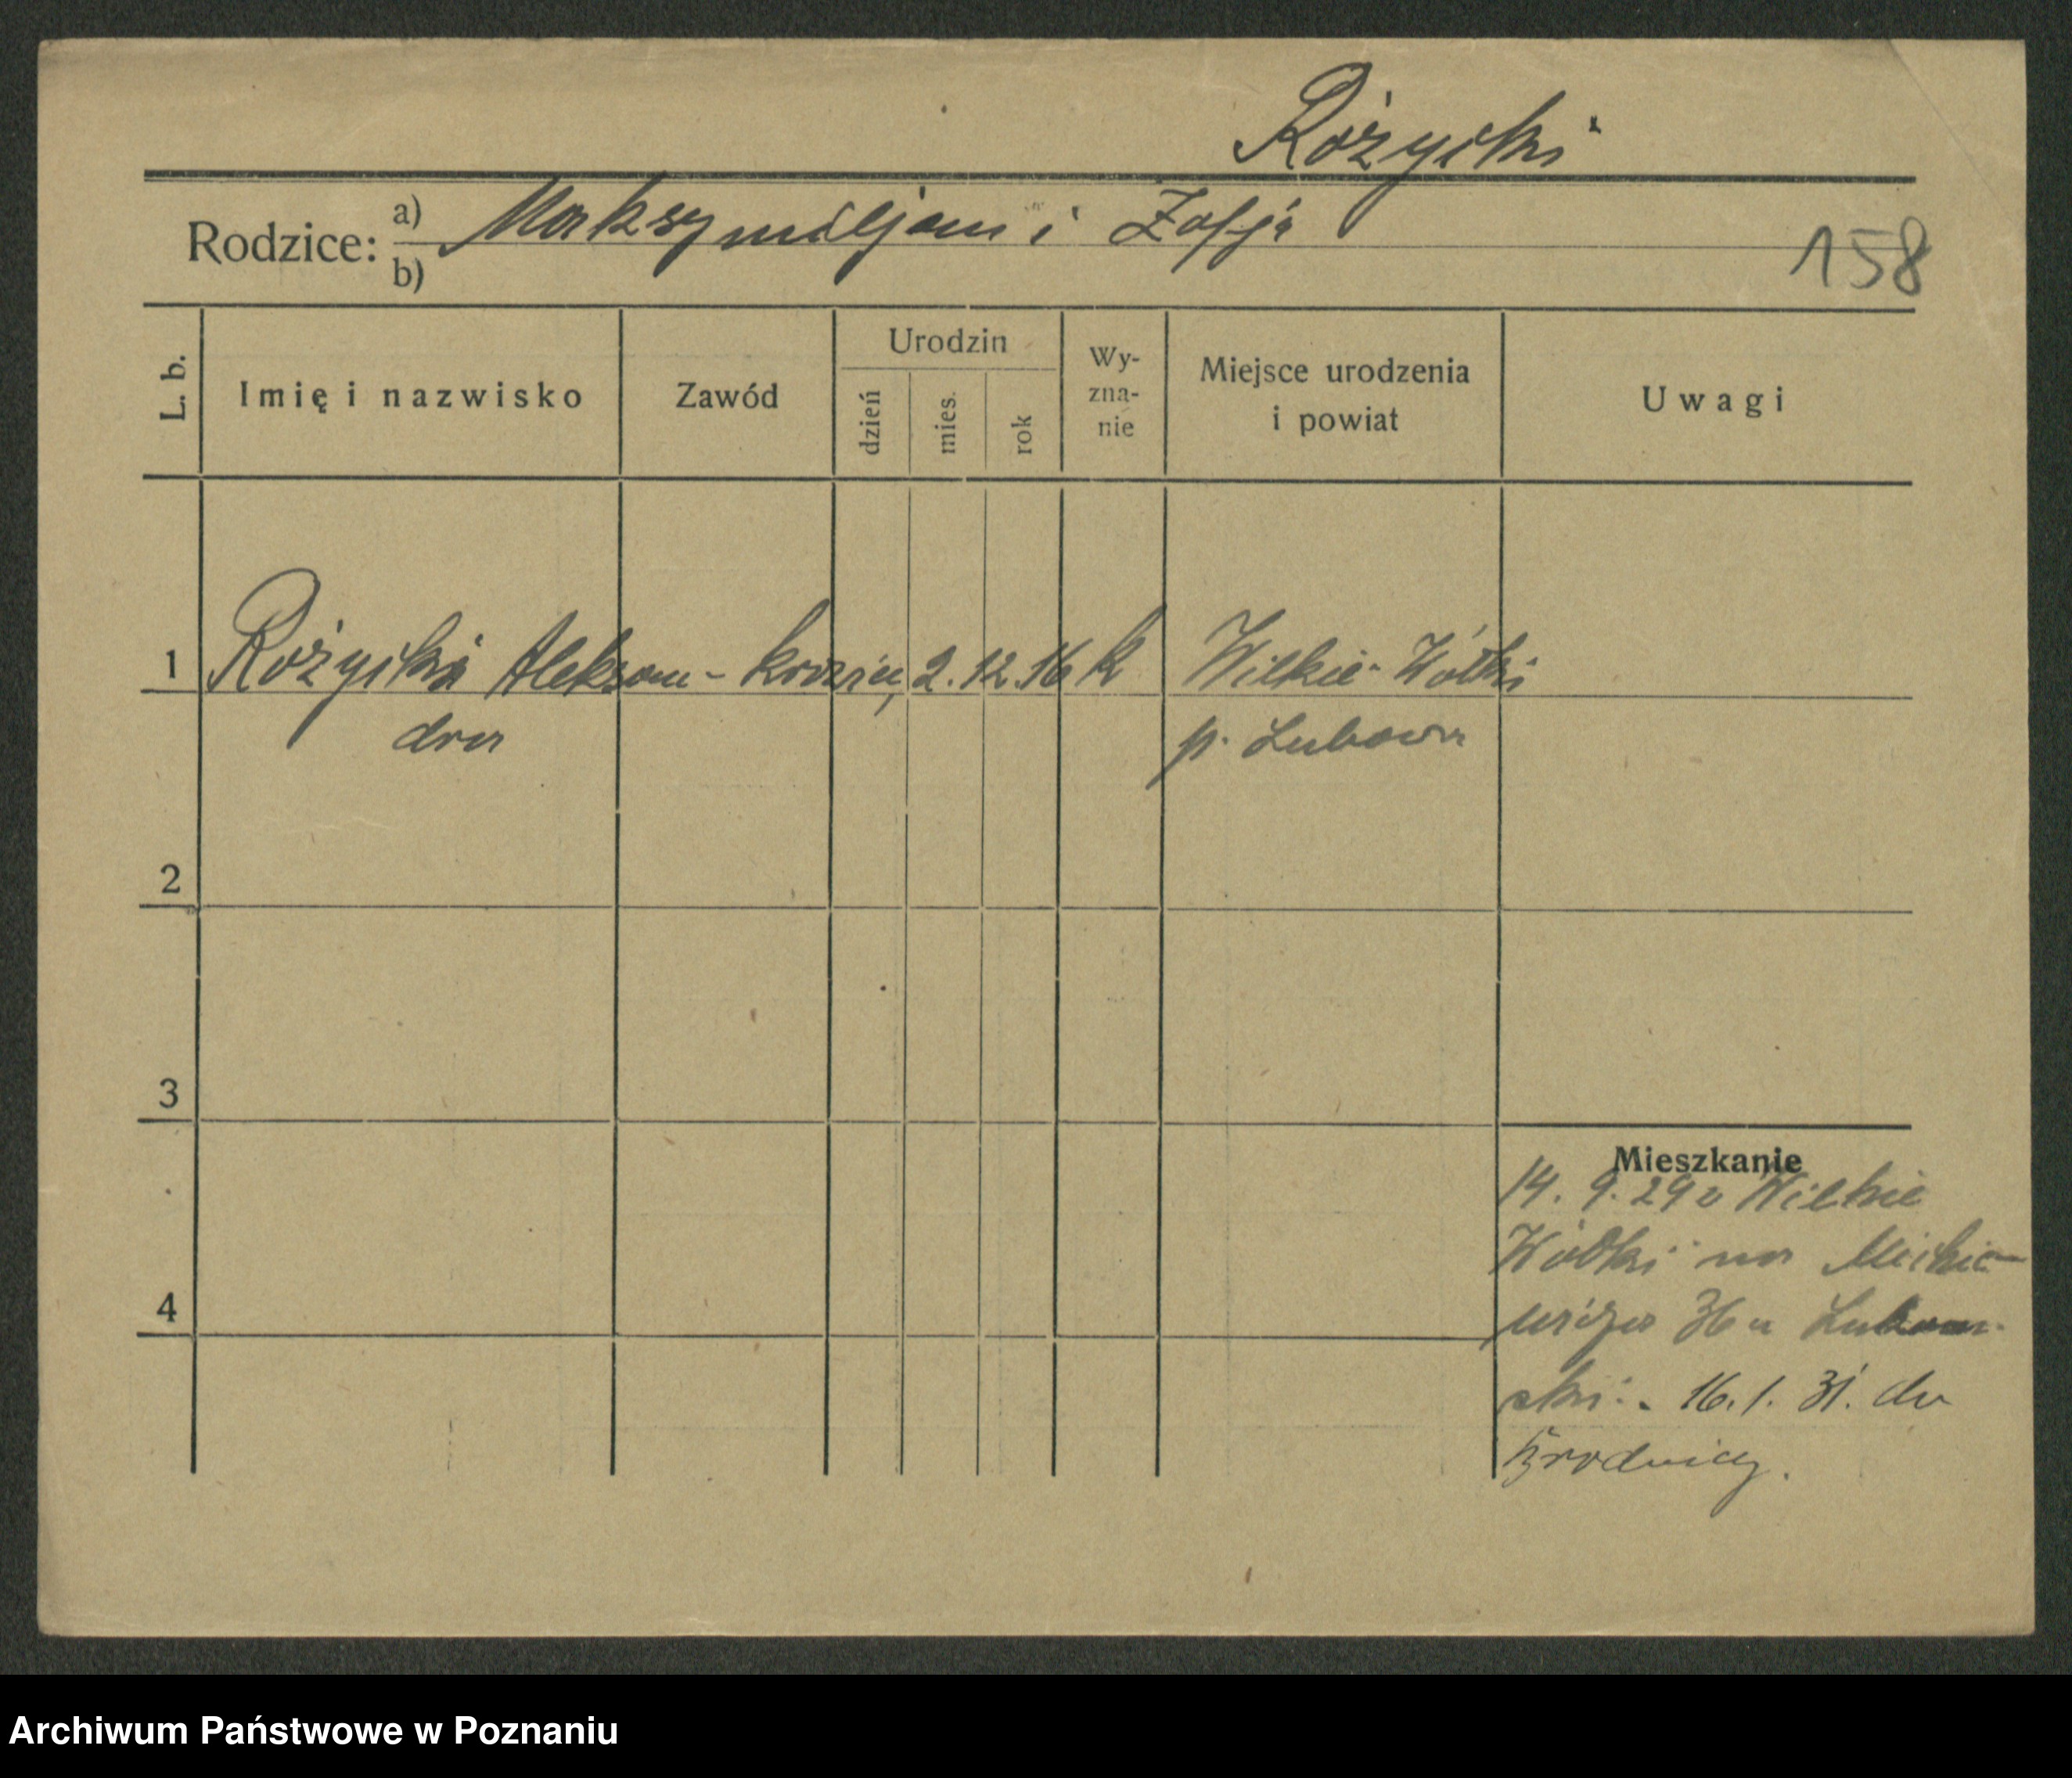 Różycki
Rodzice: a) Maksymiljan i Zofja
b)
158
L. b.
Imię i nazwisko
Zawód
Urodzin
dzień
mies.
rok
Wy-
zna-
nie
Miejsce urodzenia
i powiat
Uwagi
1 Różycki Aleksan- 2. 12. 16 k Wilkie-Wólki
dra p. Lubawa
2
3
4
Mieszkanie
14. 9. 29 z Wilkie
Wólki na Mickie-
wicza 36 u Lubaw-
ski. 16. 1. 31. do
Brodnicy.
Archiwum Państwowe w Poznaniu